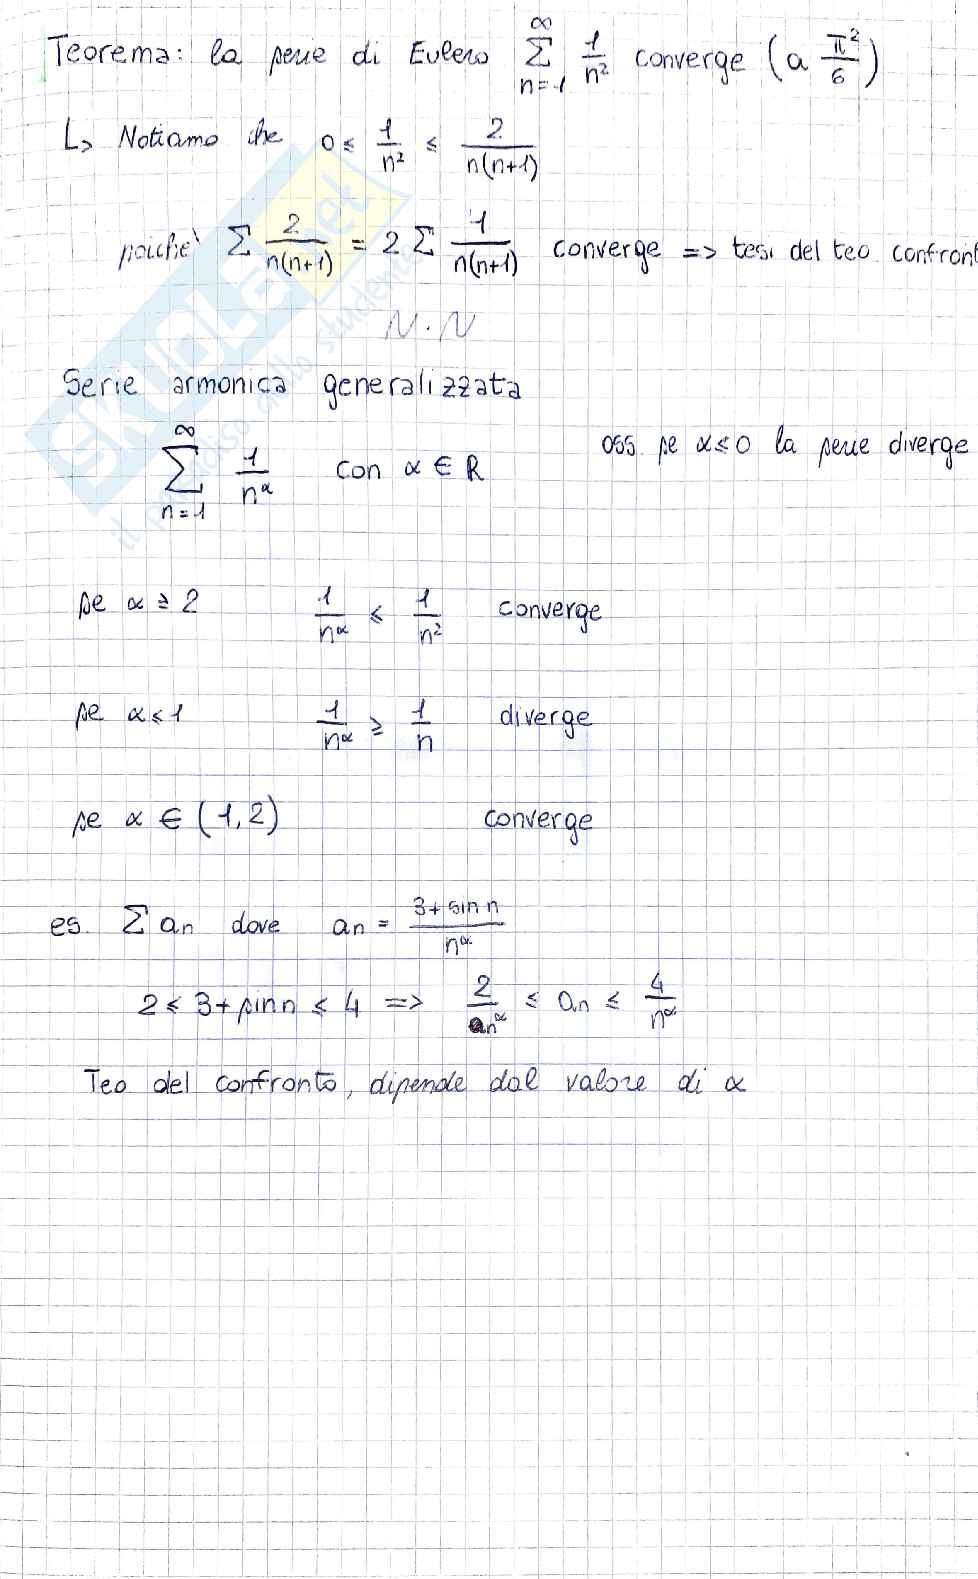 Teorema: la serie di Eulero ∞∑n=1 1/n² converge (a π²/6)
↳ Notiamo che 0 ≤ 1/n² ≤ 2/n(n+1)
poiche' ∑ 2/n(n+1) = 2 ∑ 1/n(n+1) converge => tesi del teo confront
N.N
Serie armonica generalizzata
∞∑n=1 1/n^α con α ∈ R oss. se α ≤ 0 la serie diverge
se α ≥ 2 1/n^α ≤ 1/n² converge
se α ≤ 1 1/n^α ≥ 1/n diverge
se α ∈ (1,2) converge
es. ∑ an dove an = 3+sin n/n^α
2 ≤ 3+sin n ≤ 4 => 2/n^α ≤ an ≤ 4/n^α
Teo del confronto, dipende dal valore di α
SKUOLA.net
il paradiso dello studente